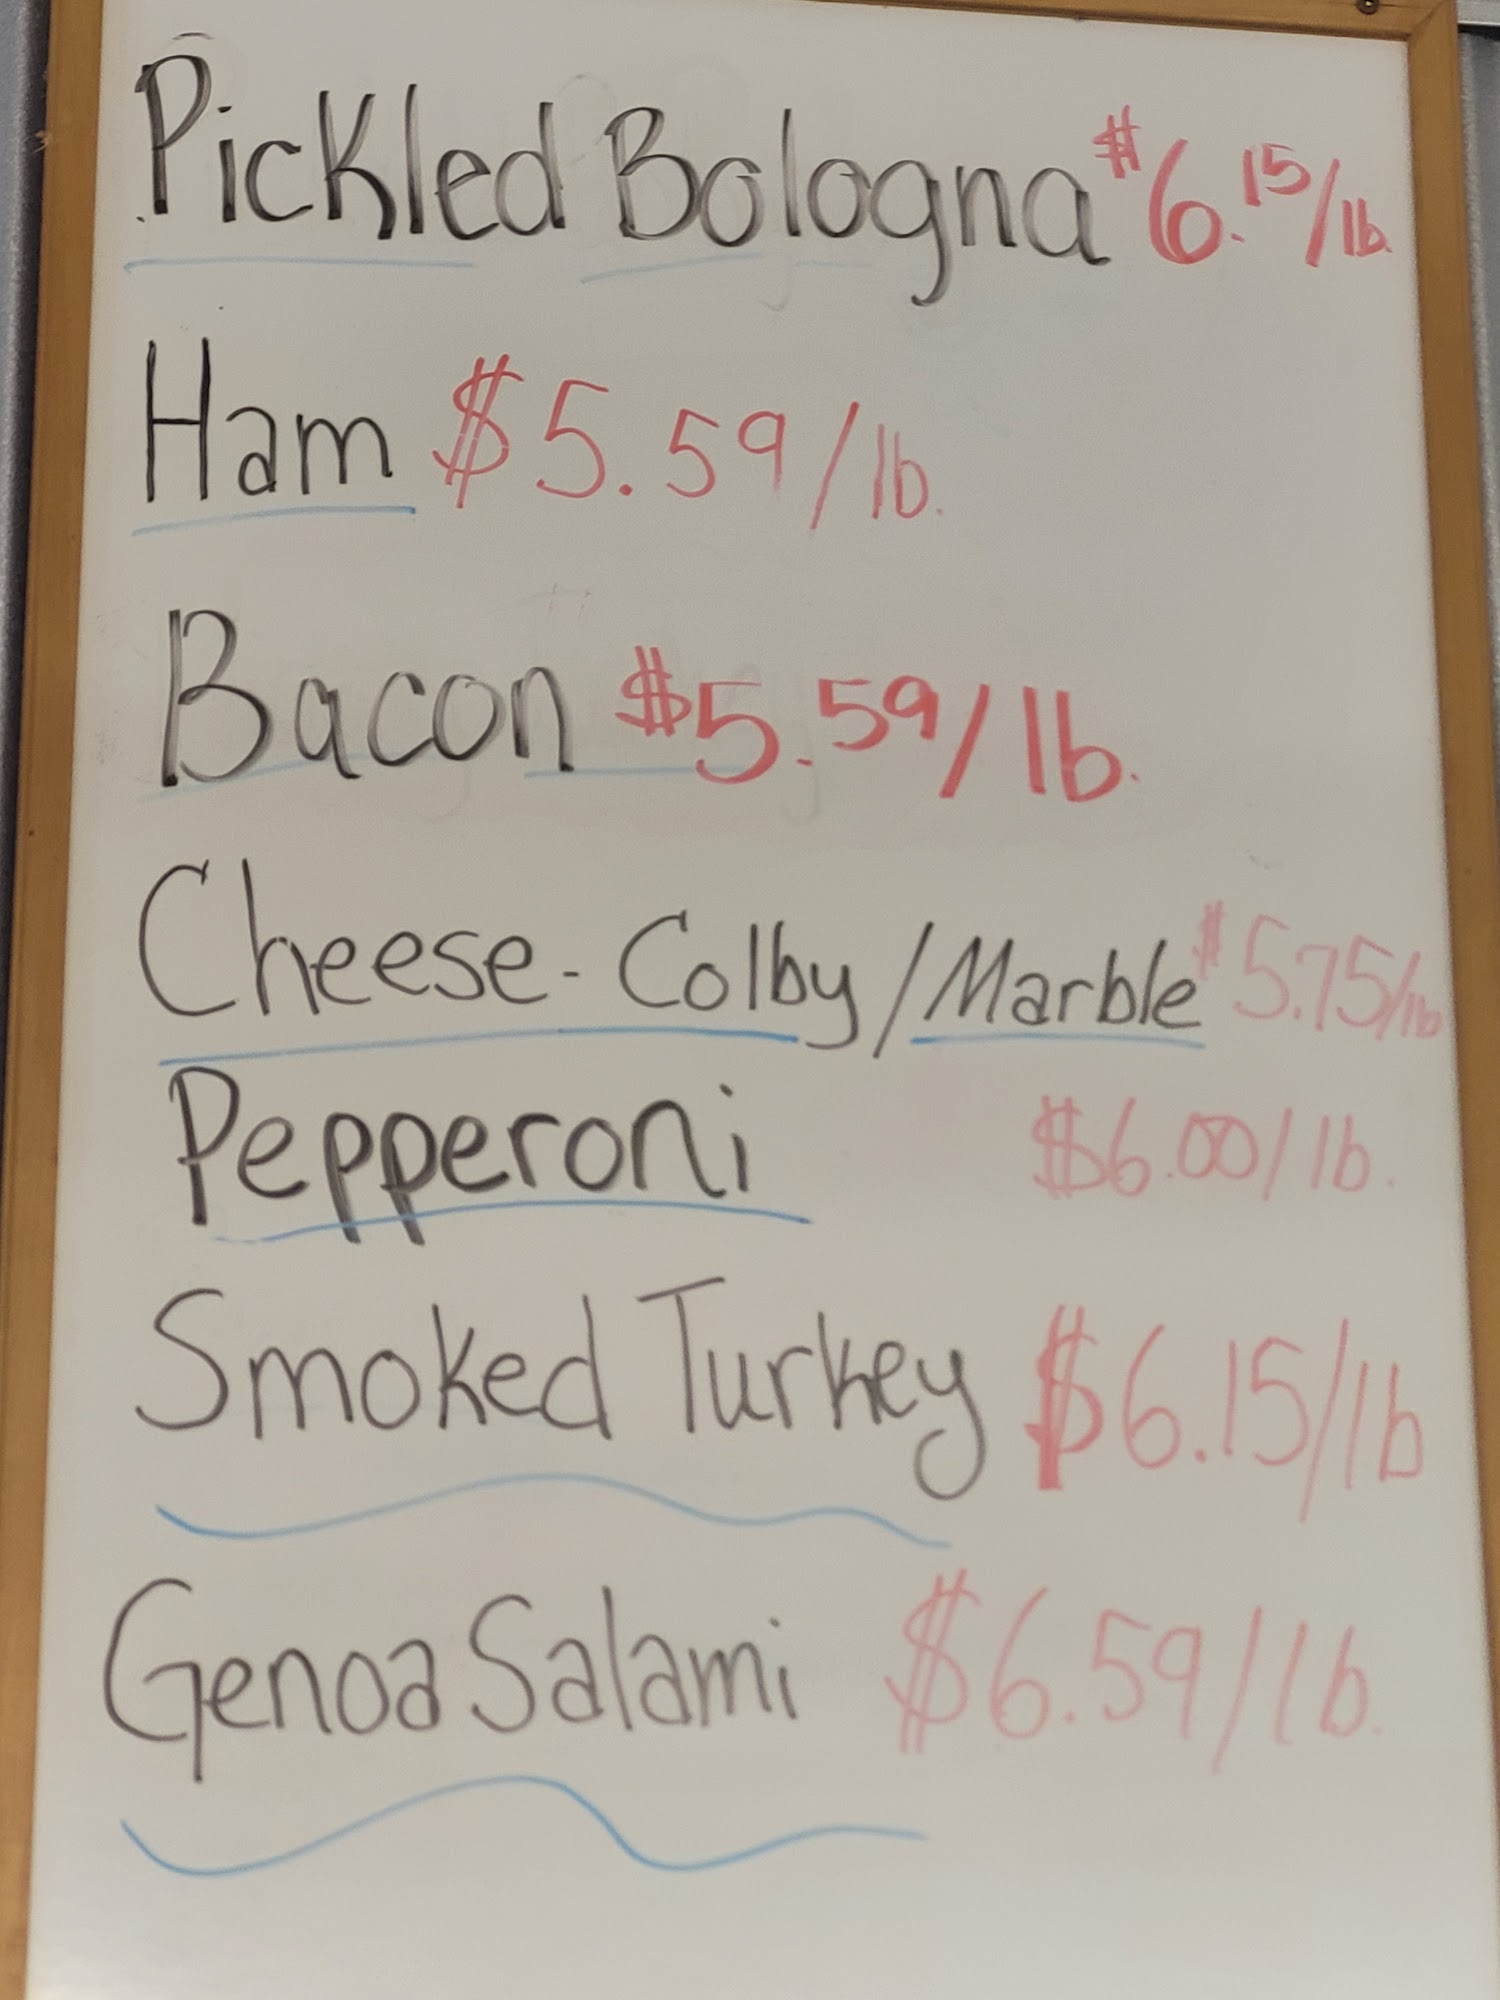 Pickled Bologna $6.15/lb.
Ham $5.59/lb.
Bacon $5.59/lb.
Cheese - Colby/Marble $5.75/lb
Pepperoni $6.00/lb.
Smoked Turkey $6.15/lb
Genoa Salami $6.59/lb.